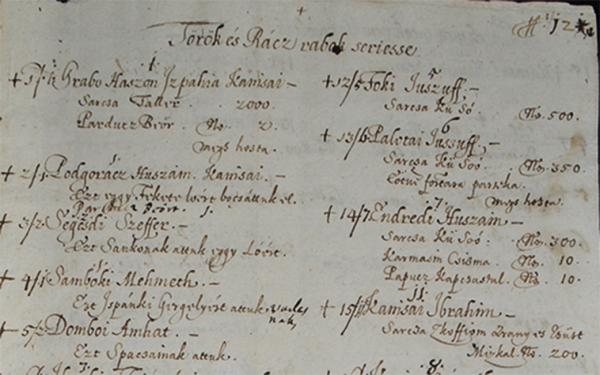 Török és Rácz rabok seriesse
№ 12
1
+ 1/12 Hrabo Haszon Izpahia Kanisai –
Sarcsa Taller . . 2000.
Parducz Bőr . No. 2.
megs hosta.
1.
+ 2/1 Podgorácz Huszain. Kanisai. –
Ezt eggy Fekete loért bocsáttuk el.
Parducz Bőrt. 1.
+ 3/2 Segesdi Szeffer. –
Ezt Sankonak attuk eggy Lóért.
1.
+ 4/1 Samboki Mehmeth. –
Ezt Ispánki Gergelyért attuk
+ 5/2 Domboi Amhat. –
Ezt Spacsainak attuk.
3.
5
+ 12/5 Foki Juszuff. –
Sarcsa Kü Só No. 500.
6
+ 13/6 Palotai Jussuff. –
Sarcsa Kü Soó . No. 350.
megs hosta
7.
+ 14/7 Endredi Huszain –
Sarcsa Kü Soó . No. 300.
Karmasin Csisma . No. 10.
Papucz Kapcsastul. No. 10.
11.
+ 15/11 Kanisai Ibrahim –
Sarcsa Skoffiom Arany es Ezüst
Miskal. No. 200.
8.